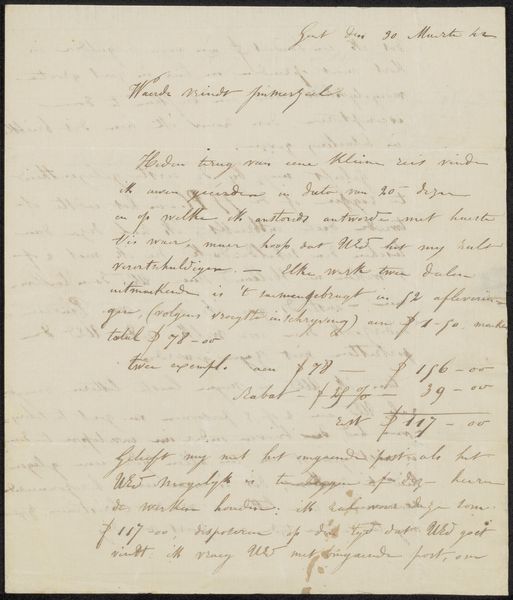 Gent den 30 Maerte 42
Waerde vriendt Immerzeel.
Heden terug van eene kleine reis vinde
ik uwen geeerden in dato van 20 dezer
en op welke ik antwoorde met haeste
is waer, maer hoop dat UEd het my zult
verontschuldigen. — Elke werk twee deelen
uitmakende is 't samengebragt in 52 afleverin-
gen, (volgens vroegste inschryving) aen ƒ 1-50. maeken
total ƒ 78-00
twee exempl. aen ƒ 78 — ƒ 156-00
Rabat - ƒ 25 % — 39-00
ƒ 117-00
Gelieft my met het omgaende post als het
UEd mogelyk is te zeggen of deze heeren
de werken houden: ik zal voor deze som
ƒ 117-00, disponeren op den tyd dat UEd goet
vindt. ik vraeg UEd met omgaende post, om